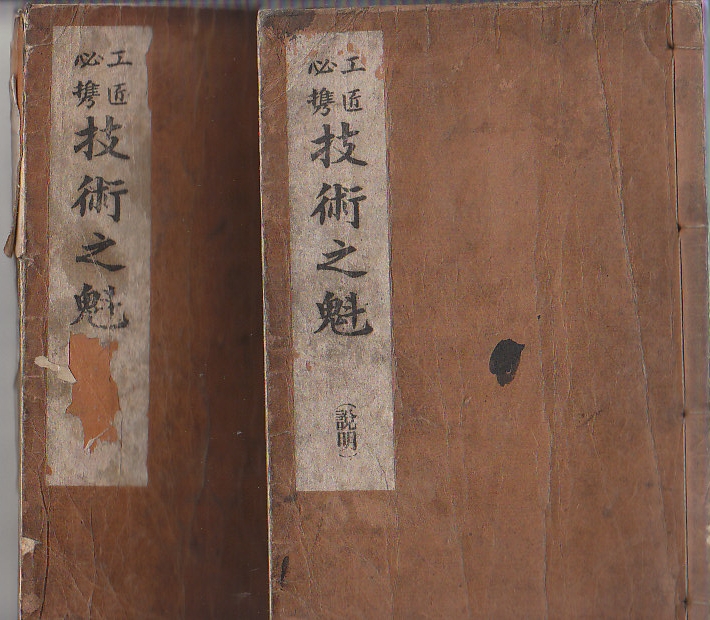 工匠
必携
技術之魁
（說明）
工匠
必携
技術之魁